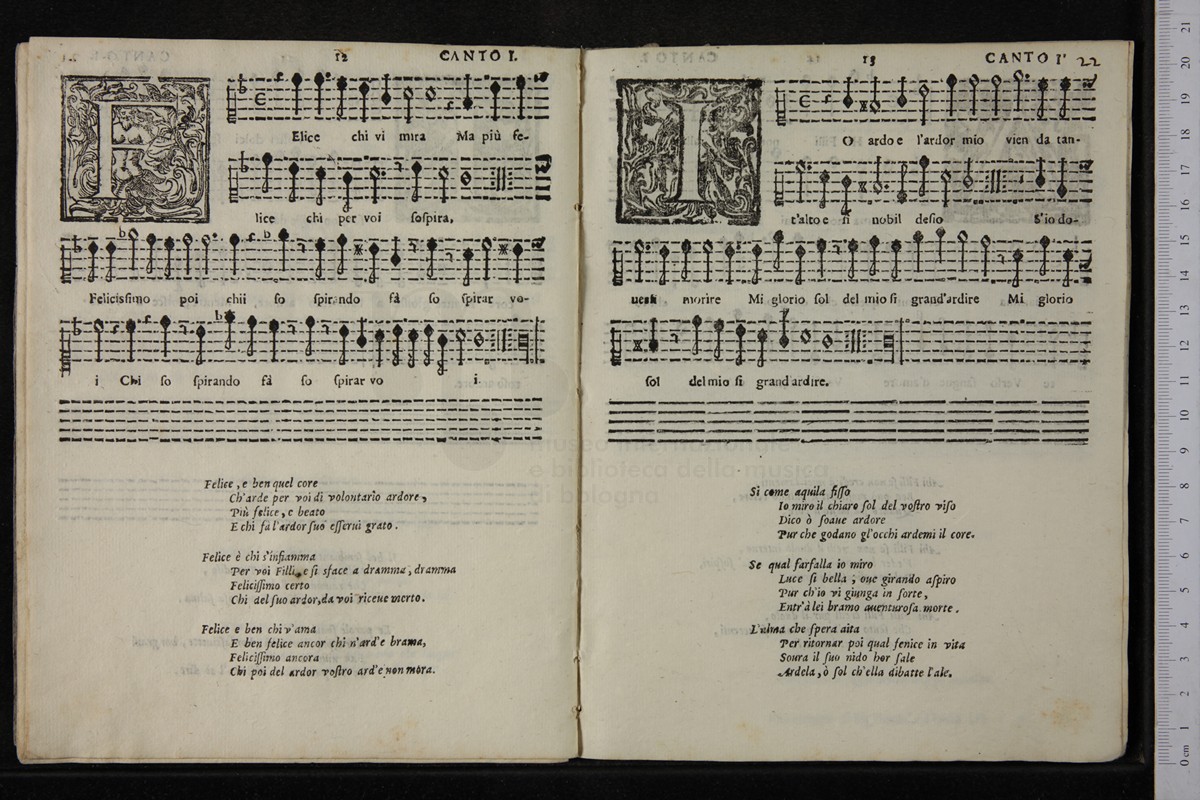 12 CANTO I.
F
Elice chi vi mira Ma più fe-
lice chi per voi ſoſpira,
Feliciſſimo poi chii ſo ſpirando fà ſo ſpirar vo-
i Chi ſo ſpirando fà ſo ſpirar vo i.
Felice, e ben quel core
Ch'arde per voi di volontario ardore,
Più felice, e beato
E chi fà l'ardor ſuo eſſerui grato.
Felice è chi s'infiamma
Per voi Filli, e ſi sface a dramma, dramma
Feliciſſimo certo
Chi del ſuo ardor, da voi riceue merto.
Felice e ben chi v'ama
E ben felice ancor chi n'ard'e brama,
Feliciſſimo ancora
Chi poi del ardor voſtro ard'e non mora.
13 CANTO I' 22
I
O ardo e l'ardor mio vien da tan-
t'alto e ſi nobil deſio S'io do-
ueſſi morire Mi glorio ſol del mio ſi grand'ardire Mi glorio
ſol del mio ſi grand'ardire.
Sì come aquila fiſſo
Io miro il chiaro ſol del voſtro viſo
Dico ò ſoaue ardore
Pur che godano gl'occhi ardemi il core.
Se qual farfalla io miro
Luce ſi bella; oue girando aſpiro
Pur ch'io vi giunga in ſorte,
Entr'à lei bramo auenturoſa morte.
L'alma che ſpera aita
Per ritornar poi qual fenice in vita
Soura il ſuo nido hor ſale
Ardela, ò ſol ch'ella dibatte l'ale.
museo internazionale
e biblioteca della musica
di bologna
0 cm 1 2 3 4 5 6 7 8 9 10 11 12 13 14 15 16 17 18 19 20 21